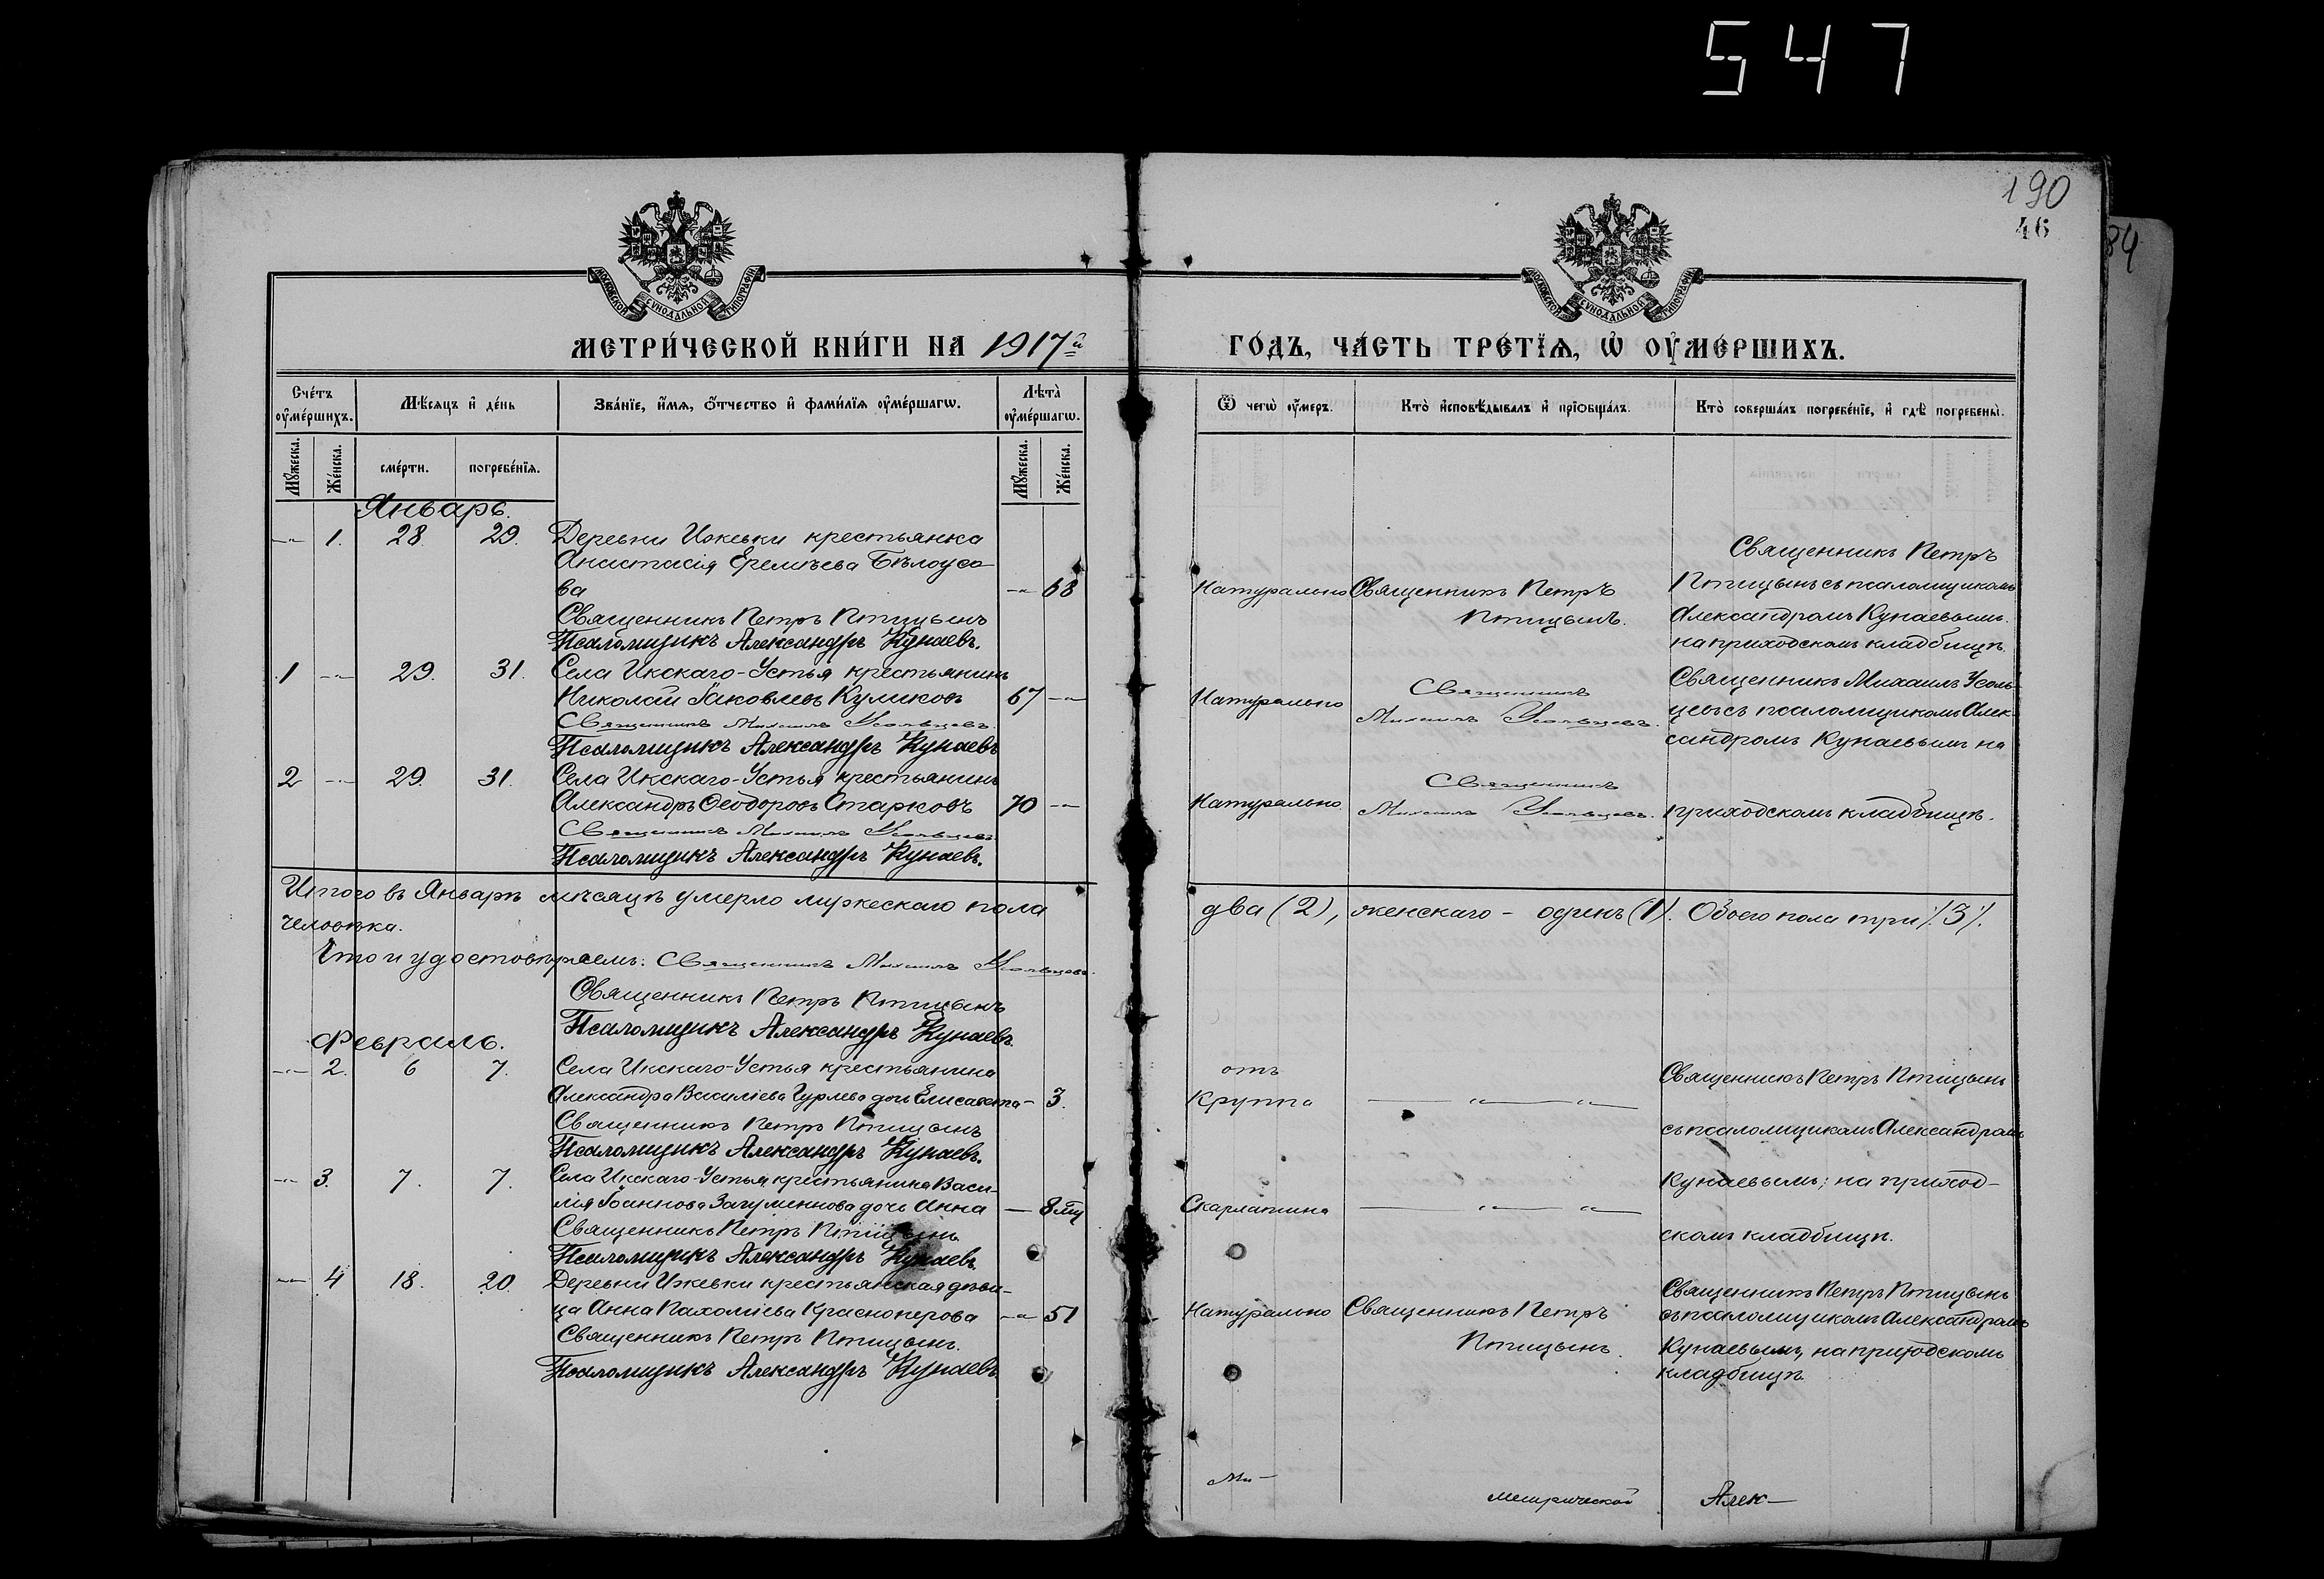 547
190
46
84
МОСКОВСКОЙ СѴНОДАЛЬНОЙ ТИПОГРАФІИ
МОСКОВСКОЙ СѴНОДАЛЬНОЙ ТИПОГРАФІИ
МЕТРИ́ЧЕСКОЙ КНИ́ГИ НА 1917й
ГО́ДЪ, ЧА́СТЬ ТРЕ́ТЇѦ, Ѡ҆ ОУ҆МЕ́РШИХЪ.
Сче́тъ оу҆ме́ршихъ.
Мѣ́сѧцъ и҆ де́нь
Зва́нїе, и҆́мѧ, ѻ҆́тчество и҆ фами́лїѧ оу҆ме́ршагѡ.
Лѣ́та оу҆ме́ршагѡ.
Ѿ чегѡ̀ оу҆́меръ.
Кто̀ и҆сповѣ́дывалъ и҆ прїѡбща́лъ.
Кто̀ соверша́лъ погребе́нїе, и҆ гдѣ̀ погребены̀.
Мꙋ́жеска.
Же́нска.
сме́рти.
погребе́нїѧ.
Мꙋ́жеска.
Же́нска.
Январь.
—„— 1. 28. 29. Деревни Ижевки крестьянка
Анастасія Еремѣева Бѣлоусо-
ва —„— 68
Священникъ Петръ Птицынъ
Псаломщикъ Александръ Кунаевъ.
Натурально Священникъ Петръ
Птицынъ.
Священникъ Петръ
Птицынъ съ псаломщикомъ
Александромъ Кунаевымъ.
на приходскомъ кладбищѣ.
1 —„— 29. 31. Села Икскаго-Устья крестьянинъ
Николай Іаковлевъ Куликовъ 67 —„—
Священникъ Михаилъ Усольцевъ.
Псаломщикъ Александръ Кунаевъ
Натурально
Священникъ
Михаилъ Усольцевъ.
Священникъ Михаилъ Усоль-
цевъ съ псаломщикомъ Алек-
сандромъ Кунаевымъ на
2 —„— 29. 31. Села Икскаго-Устья крестьянинъ
Александръ Ѳеодоровъ Старковъ 70 —„—
Священникъ Михаилъ Усольцевъ
Псаломщикъ Александръ Кунаевъ.
Натурально
Священникъ
Михаилъ Усольцевъ.
приходскомъ кладбищѣ.
Итого въ Январѣ мѣсяцѣ умерло мужескаго пола
два (2), женскаго - одинъ (1). Обоего пола три /3/.
человѣка.
Что и удостовѣряемъ: Священникъ Михаилъ Усольцевъ.
Священникъ Петръ Птицынъ
Псаломщикъ Александръ Кунаевъ.
Февраль.
—„— 2. 6 7. Села Икскаго-Устья крестьянина
Александра Василіева Гурлева дочь Елисавета — 3.
Священникъ Петръ Птицынъ
Псаломщикъ Александръ Кунаевъ.
отъ
Круппа — „ — „ —
Священникъ Петръ Птицынъ
съ псаломщикомъ Александромъ
Кунаевымъ; на приход-
скомъ кладбищѣ.
—„— 3. 7. 7. Села Икскаго-Устья крестьянина Васи-
лія Іоаннова Загуменнова дочь Анна — 8 мц
Священникъ Петръ Птицынъ
Псаломщикъ Александръ Кунаевъ.
Скарлатина — „ — „ —
—„— 4 18. 20. Деревни Ижевки крестьянская дѣви-
ца Анна Пахоміева Красноперова —„— 51
Священникъ Петръ Птицынъ.
Псаломщикъ Александръ Кунаевъ
Натурально Священникъ Петръ
Птицынъ.
Священникъ Петръ Птицынъ
съ псаломщикомъ Александромъ
Кунаевымъ, на приходскомъ
кладбищѣ.
Ми—
метрической
Алек—